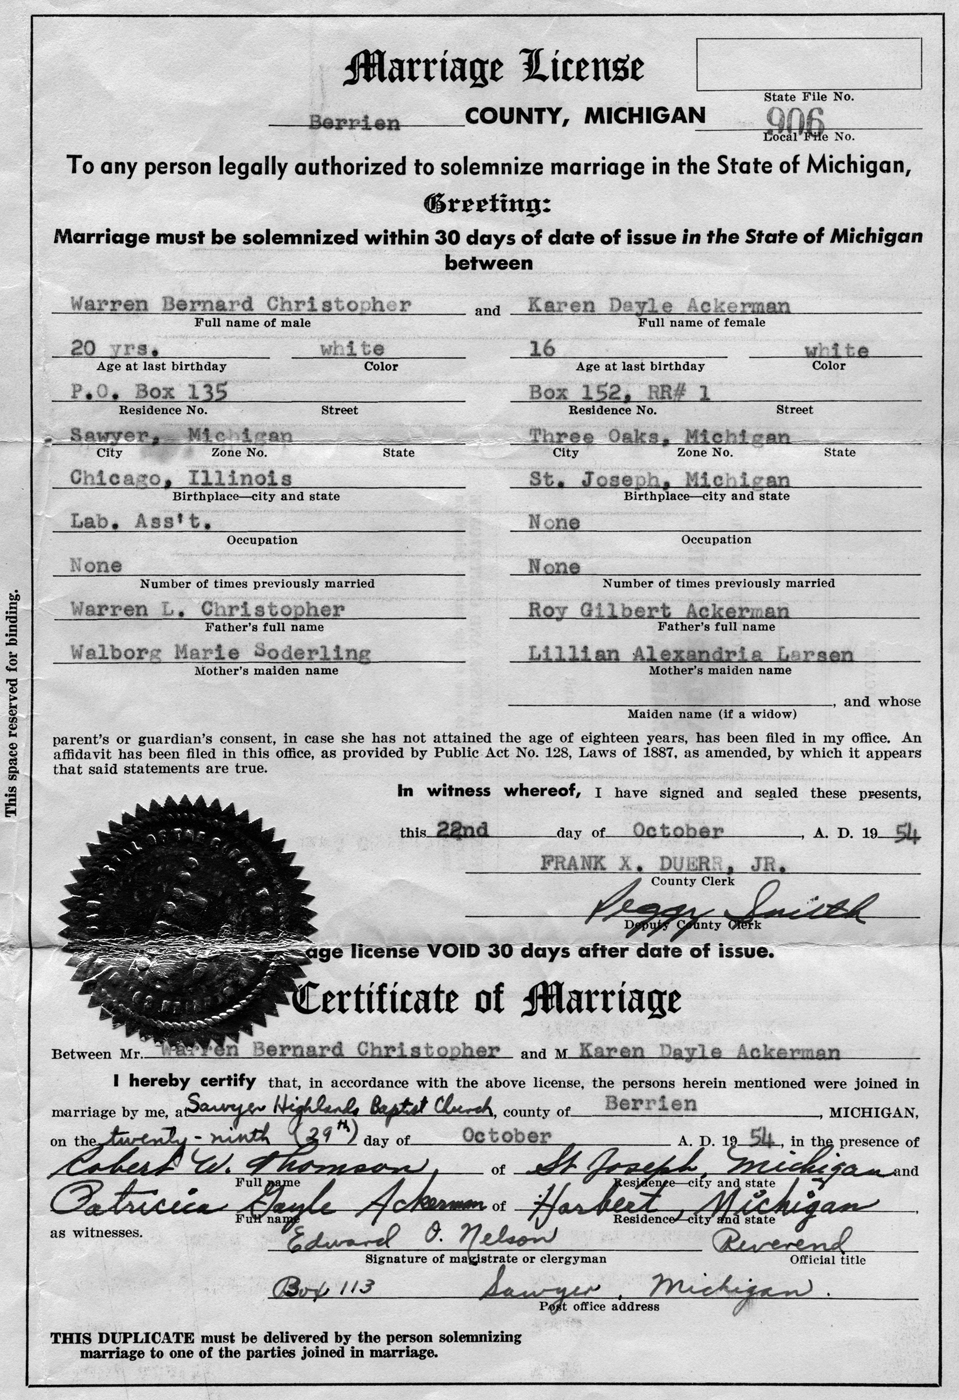 Marriage License
State File No.
Berrien COUNTY, MICHIGAN
906
Local File No.
To any person legally authorized to solemnize marriage in the State of Michigan,
Greeting:
Marriage must be solemnized within 30 days of date of issue in the State of Michigan
between
Warren Bernard Christopher and Karen Dayle Ackerman
Full name of male Full name of female
20 yrs. white 16 white
Age at last birthday Color Age at last birthday Color
P.O. Box 135 Box 152, RR# 1
Residence No. Street Residence No. Street
Sawyer, Michigan Three Oaks, Michigan
City Zone No. State City Zone No. State
Chicago, Illinois St. Joseph, Michigan
Birthplace—city and state Birthplace—city and state
Lab. Ass't. None
Occupation Occupation
None None
Number of times previously married Number of times previously married
Warren L. Christopher Roy Gilbert Ackerman
Father's full name Father's full name
Walborg Marie Soderling Lillian Alexandria Larsen
Mother's maiden name Mother's maiden name
, and whose
Maiden name (if a widow)
parent's or guardian's consent, in case she has not attained the age of eighteen years, has been filed in my office. An
affidavit has been filed in this office, as provided by Public Act No. 128, Laws of 1887, as amended, by which it appears
that said statements are true.
In witness whereof, I have signed and sealed these presents,
this 22nd day of October, A. D. 19 54
FRANK X. DUERR, JR.
County Clerk
Peggy Smith
Deputy County Clerk
age license VOID 30 days after date of issue.
Certificate of Marriage
Between Mr. Warren Bernard Christopher and M Karen Dayle Ackerman
I hereby certify that, in accordance with the above license, the persons herein mentioned were joined in
marriage by me, at Sawyer Highlands Baptist Church, county of Berrien, MICHIGAN,
on the twenty-ninth (29th) day of October A. D. 19 54, in the presence of
Robert W. Thomson, of St Joseph, Michigan and
Full name Residence—city and state
Patricia Gayle Ackerman of Harbert, Michigan,
Full name Residence—city and state
as witnesses.
Edward O. Nelson Reverend
Signature of magistrate or clergyman Official title
Box 113 Sawyer, Michigan.
Post office address
THIS DUPLICATE must be delivered by the person solemnizing
marriage to one of the parties joined in marriage.
This space reserved for binding.